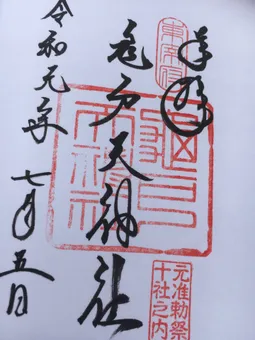 奉拝
東宰府
亀戸天神社
元准勅祭
十社之内
令和元年
七月五日